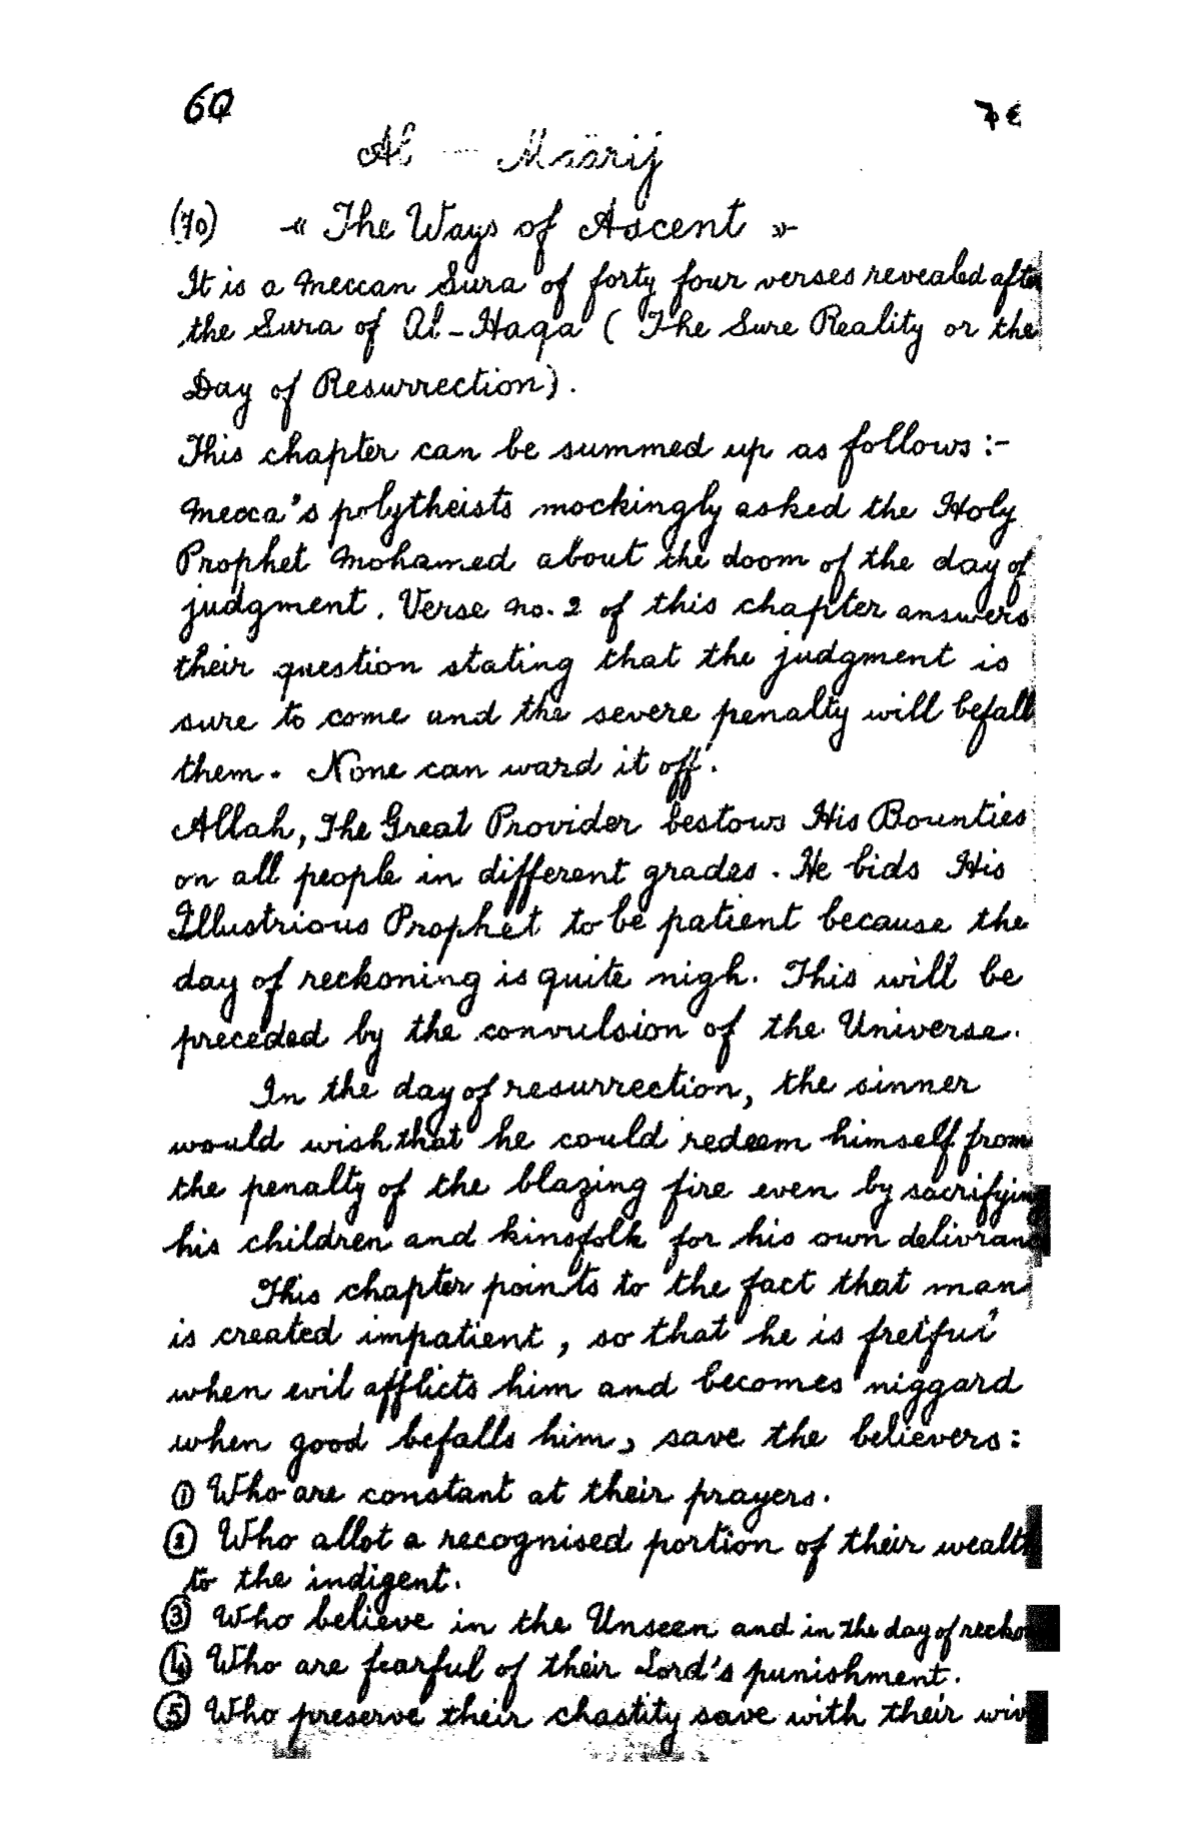 60
Al - Maarij
(70) « The Ways of Ascent »
It is a Meccan Sura of forty four verses revealed after
the Sura of Al-Haqa ( The Sure Reality or the
Day of Resurrection).
This chapter can be summed up as follows :-
Mecca's polytheists mockingly asked the Holy
Prophet Mohamed about the doom of the day of
judgment. Verse no. 2 of this chapter answers
their question stating that the judgment is
sure to come and the severe penalty will befall
them. None can ward it off.
Allah, The Great Provider bestows His Bounties
on all people in different grades. He bids His
Illustrious Prophet to be patient because the
day of reckoning is quite nigh. This will be
preceded by the convulsion of the Universe.
In the day of resurrection, the sinner
would wish that he could redeem himself from
the penalty of the blazing fire even by sacrifyin
his children and kinsfolk for his own delivranc
This chapter points to the fact that man
is created impatient, so that he is fretful
when evil afflicts him and becomes niggard
when good befalls him, save the believers :
① Who are constant at their prayers.
② Who allot a recognised portion of their wealth
to the indigent.
③ Who believe in the Unseen and in the day of recko
④ Who are fearful of their Lord's punishment.
⑤ Who preserve their chastity save with their wiv